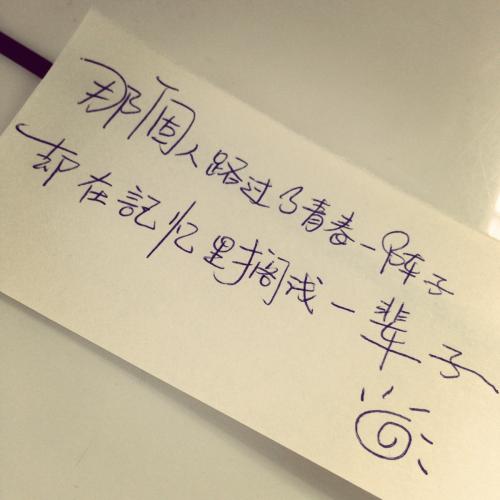 那個人路过了青春一阵子
却在記忆里搁浅一辈子